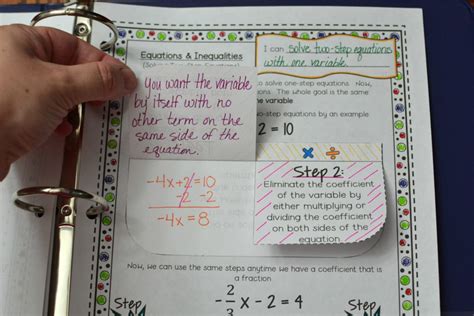 Equations & Inequalities
I can solve two-step equations
with one variable.
You want the variable
by itself with no
other term on the
same side of the
equation.
to solve one-step equations. Now,
The whole goal is the same
variable
two-step equations by an example.
2 = 10
-4x+2=10
-2 -2
-4x = 8
× ÷
Step 2:
Eliminate the coefficient
of the variable by
either multiplying or
dividing the coefficient
on both sides of the
equation.
Now, we can use the same steps anytime we have a coefficient that is
a fraction
-2/3 x - 2 = 4
Step
Step